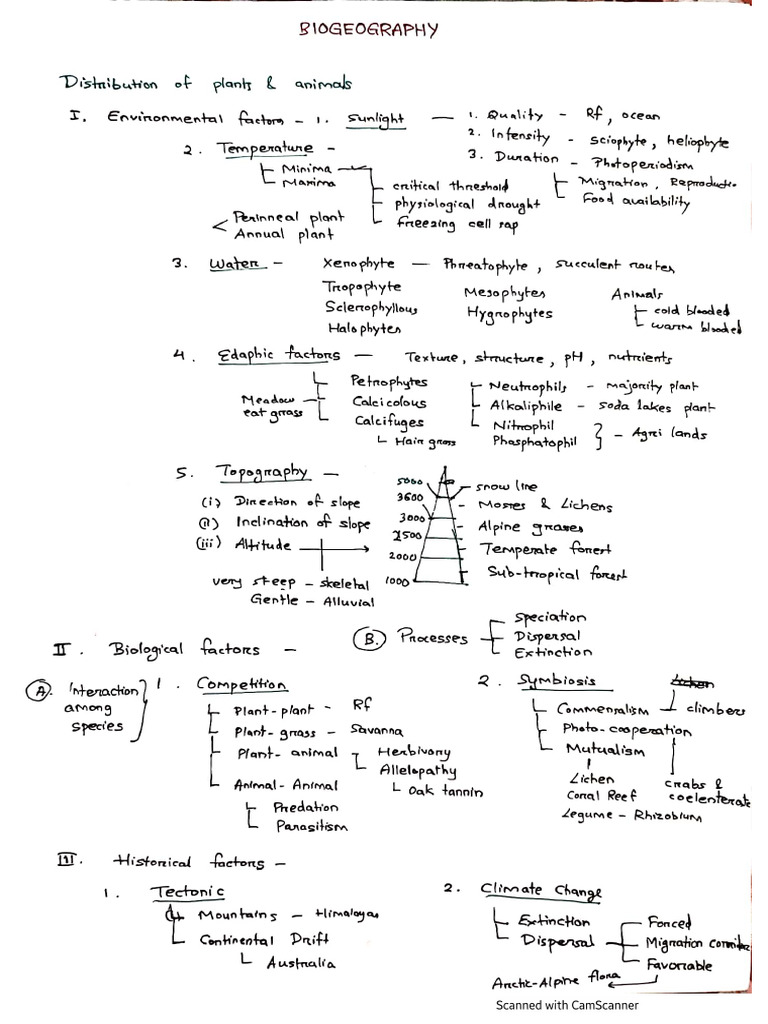 BIOGEOGRAPHY
Distribution of plants & animals
I. Environmental factors - 1. Sunlight — 1. Quality - Rf, ocean
2. Intensity - sciophyte, heliophyte
3. Duration - Photoperiodism
Migration, Reproductio.
Food availability
2. Temperature -
Minima
Maxima
critical threshold
physiological drought
freezing cell sap
< Perinneal plant
Annual plant
3. Water - Xenophyte — Phreatophyte, succulent routes
Tropophyte Mesophytes Animals
Sclerophyllous Hygrophytes cold blooded
Halophytes warm blooded
4. Edaphic factors — Texture, structure, pH, nutrients
Petrophytes Neutrophils - majority plant
Meadow Calcicolous Alkaliphile - soda lakes plant
eat grass Calcifuges Nitrophil
Hair grass Phosphatophil } - Agri lands
5. Topography -
(i) Direction of slope
(ii) Inclination of slope
(iii) Altitude
very steep - skeletal
Gentle - Alluvial
5000 snow line
3600 Mosses & Lichens
3000 Alpine grasses
2500 Temperate forest
2000 Sub-tropical forest
1000
II. Biological factors -
B. Processes Speciation
Dispersal
Extinction
A. Interaction among species
1. Competition
Plant-plant - Rf
Plant-grass - Savanna
Plant-animal Herbivory
Allelopathy
Oak tannin
Animal-Animal
Predation
Parasitism
2. Symbiosis
Commensalism climbers
Photo-cooperation
Mutualism
Lichen crabs &
Coral Reef coelenterate
Legume - Rhizobium
III. Historical factors -
1. Tectonic
Mountains - Himalayas
Continental Drift
Australia
2. Climate Change
Extinction
Dispersal
Forced
Migration corridor
Favorable
Arctic-Alpine flora
Scanned with CamScanner